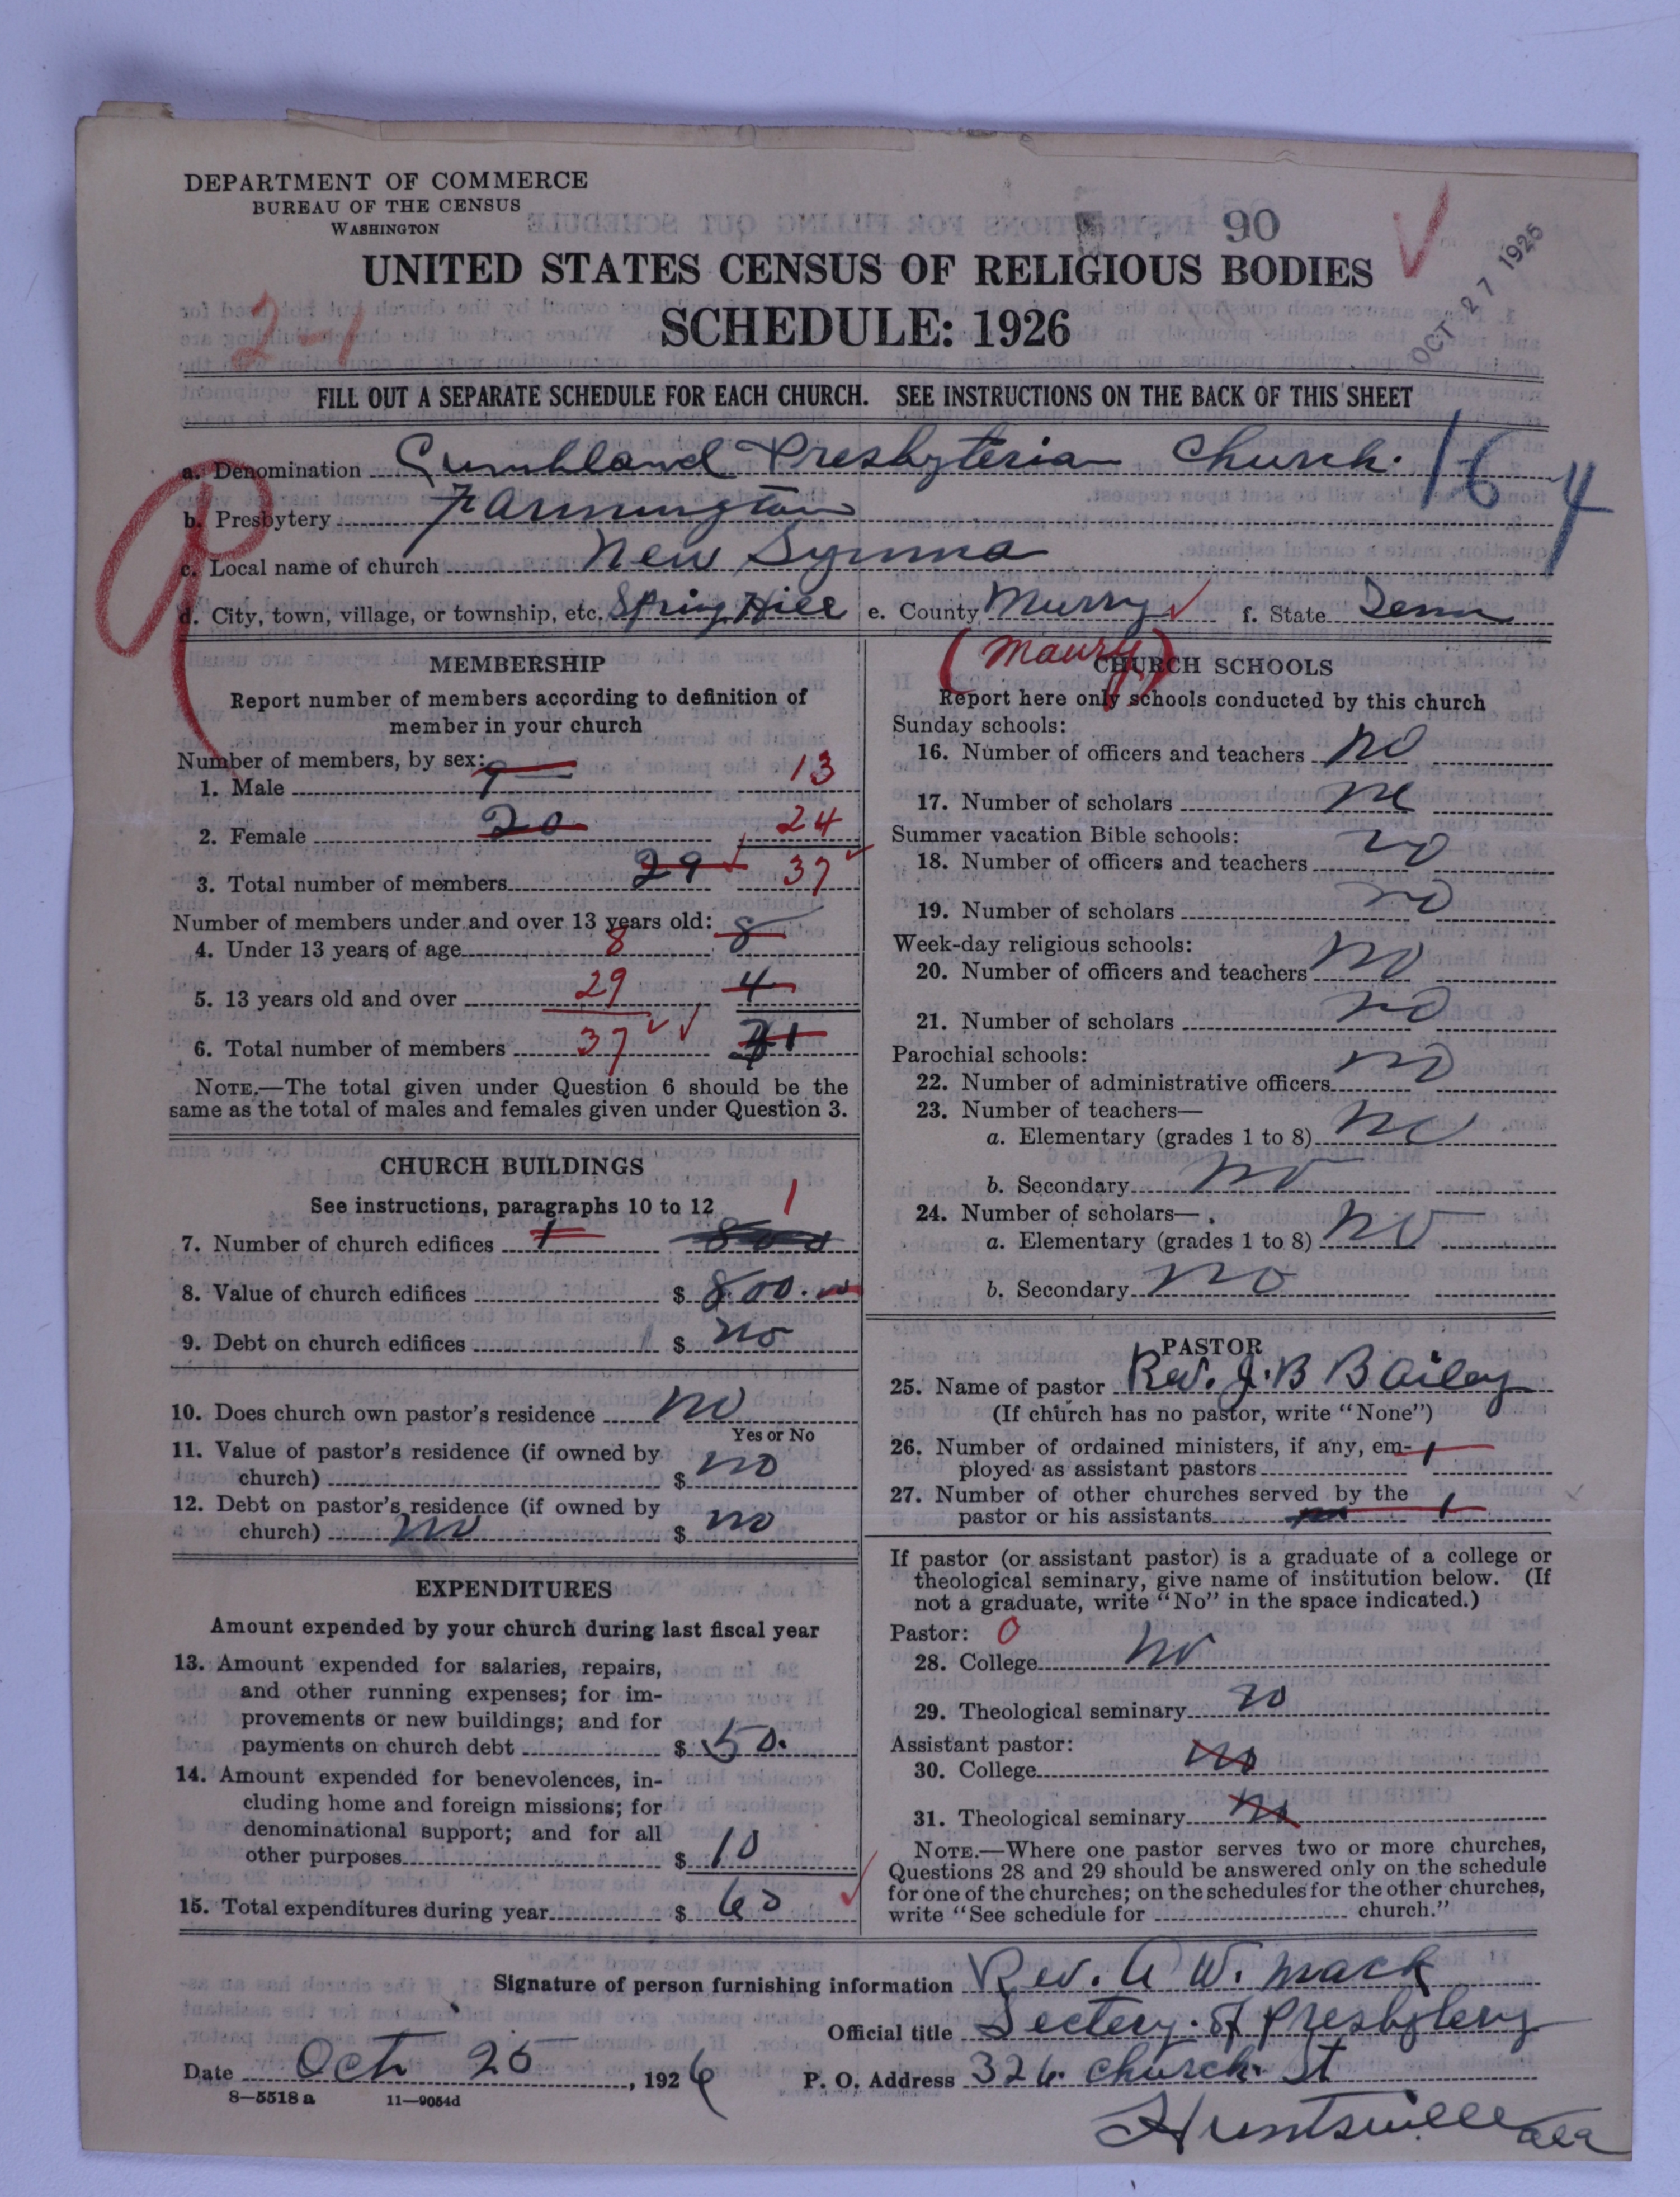 DEPARTMENT OF COMMERCE
BUREAU OF THE CENSUS
WASHINGTON
90
OCT 27 1926
UNITED STATES CENSUS OF RELIGIOUS BODIES
2-1
SCHEDULE: 1926
FILL OUT A SEPARATE SCHEDULE FOR EACH CHURCH. SEE INSTRUCTIONS ON THE BACK OF THIS SHEET
9
164
a. Denomination Cumbland Presbyterian Church.
b. Presbytery Farmington
c. Local name of church New
d. City, town, village, or township, etc. Spring Hill e. County Murry f. State Tenn
(Maury)
MEMBERSHIP
Report number of members according to definition of
member in your church
Number of members, by sex:
1. Male 9 13
2. Female 20 24
3. Total number of members 29 37
Number of members under and over 13 years old:
4. Under 13 years of age 8 8
5. 13 years old and over 29 4
6. Total number of members 37
NOTE.—The total given under Question 6 should be the
same as the total of males and females given under Question 3.
CHURCH BUILDINGS
See instructions, paragraphs 10 to 12
7. Number of church edifices 1 800 1
8. Value of church edifices $ 800.00
9. Debt on church edifices $ no
10. Does church own pastor's residence no
Yes or No
11. Value of pastor's residence (if owned by
church) $ no
12. Debt on pastor's residence (if owned by
church) no $ no
EXPENDITURES
Amount expended by your church during last fiscal year
13. Amount expended for salaries, repairs,
and other running expenses; for im-
provements or new buildings; and for
payments on church debt $ 50.
14. Amount expended for benevolences, in-
cluding home and foreign missions; for
denominational support; and for all
other purposes $ 10
15. Total expenditures during year $ 60
CHURCH SCHOOLS
Report here only schools conducted by this church
Sunday schools:
16. Number of officers and teachers no
17. Number of scholars no
Summer vacation Bible schools:
18. Number of officers and teachers no
19. Number of scholars no
Week-day religious schools:
20. Number of officers and teachers no
21. Number of scholars no
Parochial schools:
22. Number of administrative officers no
23. Number of teachers—
a. Elementary (grades 1 to 8) no
b. Secondary no
24. Number of scholars—
a. Elementary (grades 1 to 8) no
b. Secondary no
PASTOR
25. Name of pastor Rev. J. B Bailey
(If church has no pastor, write "None")
26. Number of ordained ministers, if any, em-
ployed as assistant pastors 1
27. Number of other churches served by the
pastor or his assistants no 1
If pastor (or assistant pastor) is a graduate of a college or
theological seminary, give name of institution below. (If
not a graduate, write "No" in the space indicated.)
Pastor: 0
28. College no
29. Theological seminary no
Assistant pastor:
30. College no
31. Theological seminary no
NOTE.—Where one pastor serves two or more churches,
Questions 28 and 29 should be answered only on the schedule
for one of the churches; on the schedules for the other churches,
write "See schedule for church."
Signature of person furnishing information Rev. A W. Mack
Official title Sectery. of Presbytery
Date Oct 25, 1926 P. O. Address 326. Church. St
8—5518 a 11—9054d
Huntsville Ala